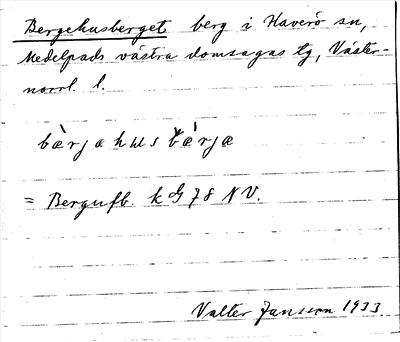 Bergehusberget berg i Haverö sn,
Medelpads västra domsagas tg, Väster-
norrl. l.
bærjahusbærjæ
= Bergufb. kG 78 NV.
Valter Jansson 1933.